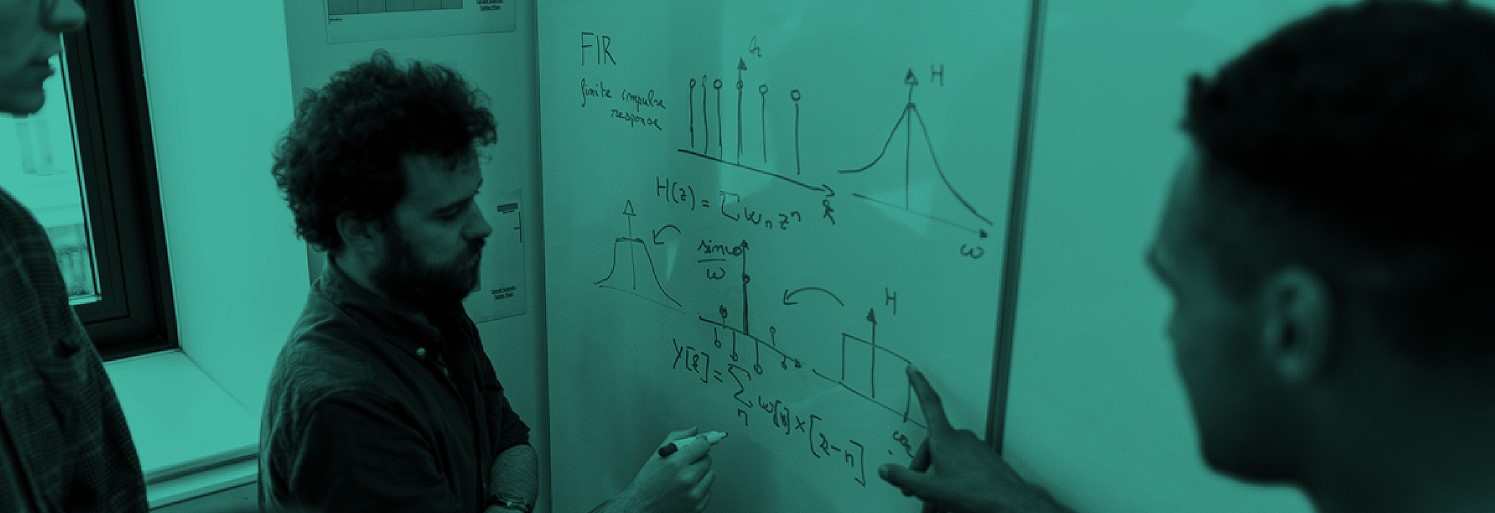 FIR
finite impulse
response
h
H
k
ω
H(z) = Σ wₙ zⁿ
sin ω
ω
H
Y[k] = Σ w[n] x [k-n]
n